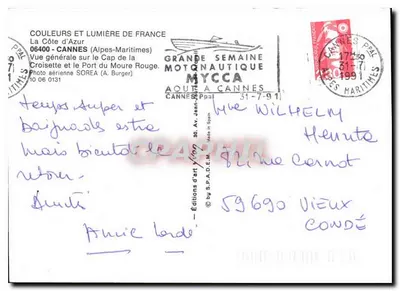 COULEURS ET LUMIÈRE DE FRANCE
La Côte d'Azur
06400 - CANNES (Alpes-Maritimes)
Vue générale sur le Cap de la
Croisette et le Port du Moure Rouge.
Photo aérienne SOREA (A. Burger)
10 06 0131
GRANDE SEMAINE
MOTONAUTIQUE
MYCCA
AOUT A CANNES
CANNES Ppal 31-7-91
CANNES Ppal
17H
31-7
1991
ALPES MARITIMES
temps super et
baignades extra
mais bientôt le
retour.
Amitiés
Annie
Editions d'art
© by S.P.A.D.E.M.
Made in
Mme WILHELM
Henriette
82 rue Carnot
59690 VIEUX
CONDÉ